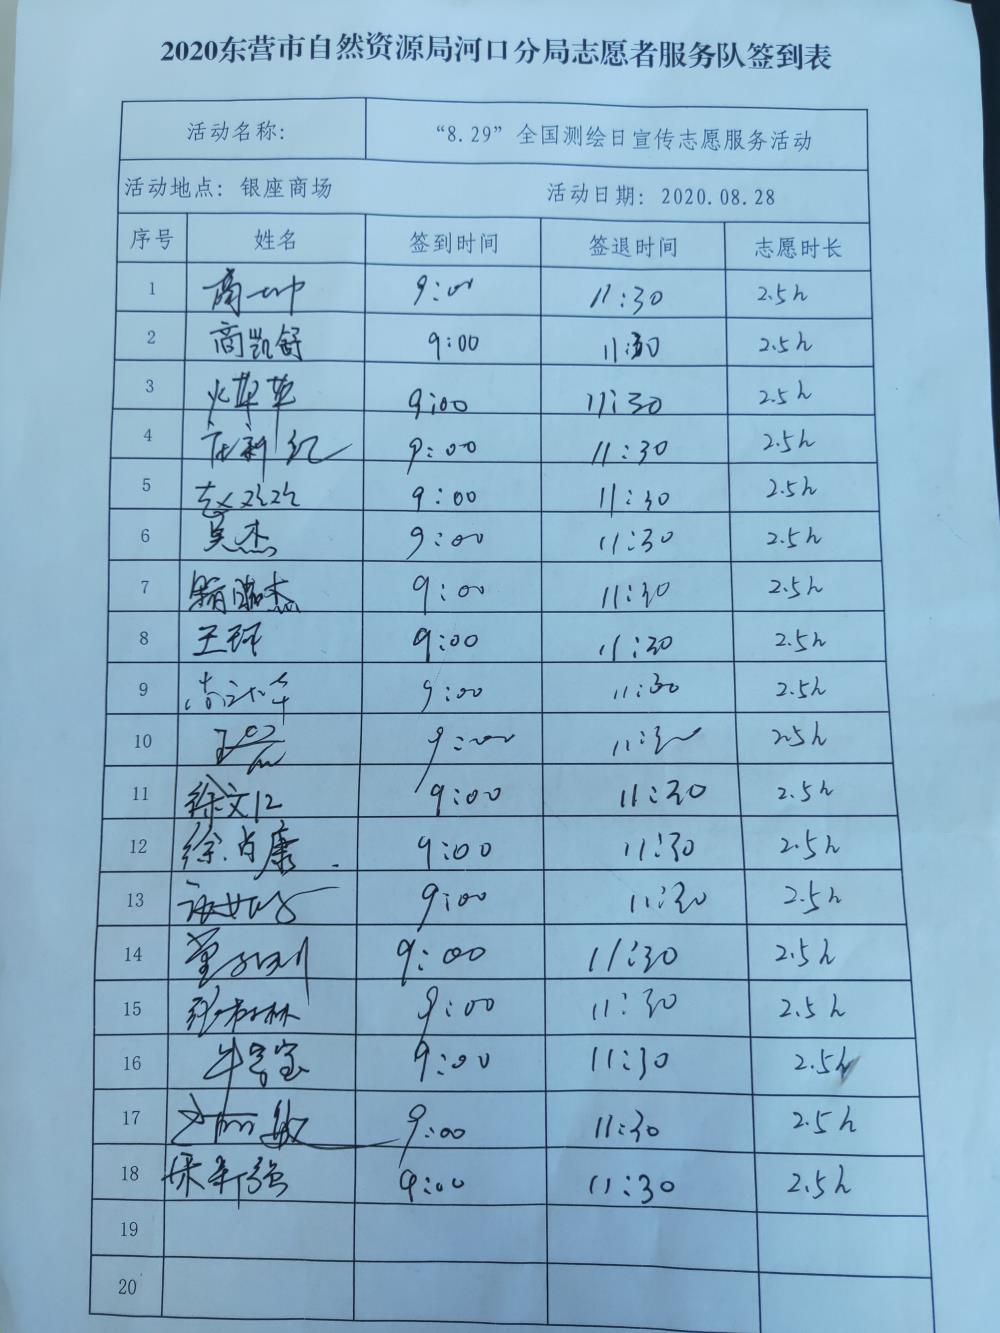 2020东营市自然资源局河口分局志愿者服务队签到表
活动名称: “8.29”全国测绘日宣传志愿服务活动
活动地点: 银座商场 活动日期: 2020.08.28
序号 姓名 签到时间 签退时间 志愿时长
1 9:00 11:30 2.5h
2 商凯舒 9:00 11:30 2.5h
3 9:00 11:30 2.5h
4 9:00 11:30 2.5h
5 9:00 11:30 2.5h
6 吴杰 9:00 11:30 2.5h
7 9:00 11:30 2.5h
8 9:00 11:30 2.5h
9 9:00 11:30 2.5h
10 9:00 11:30 2.5h
11 徐文仁 9:00 11:30 2.5h
12 徐肖康 9:00 11:30 2.5h
13 9:00 11:30 2.5h
14 9:00 11:30 2.5h
15 9:00 11:30 2.5h
16 9:00 11:30 2.5h
17 9:00 11:30 2.5h
18 9:00 11:30 2.5h
19
20